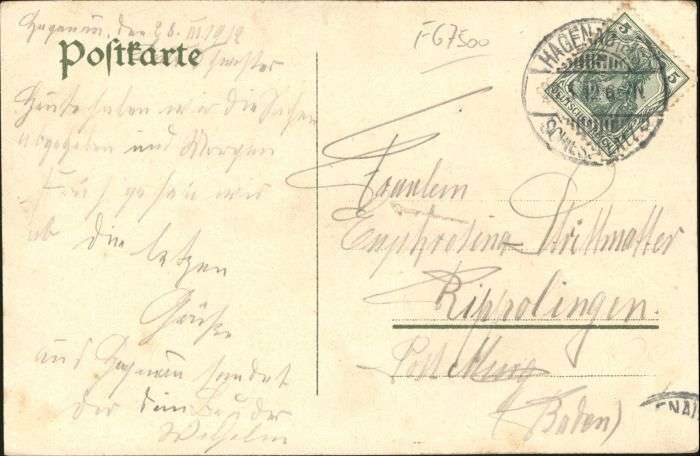 Hagenau, den 28. III 1912
Postkarte
F67500
HAGENAU
5
5
Schwester
Heute haben wir die Sachen
abgegeben und Morgen
Früh gehen wir
ab die letzen
Grüße
aus Hagenau sendet
dir dein Bruder
Wilhelm
Fräulein
Euphrosina Strittmatter
Rippolingen
Post Murg
(Baden)